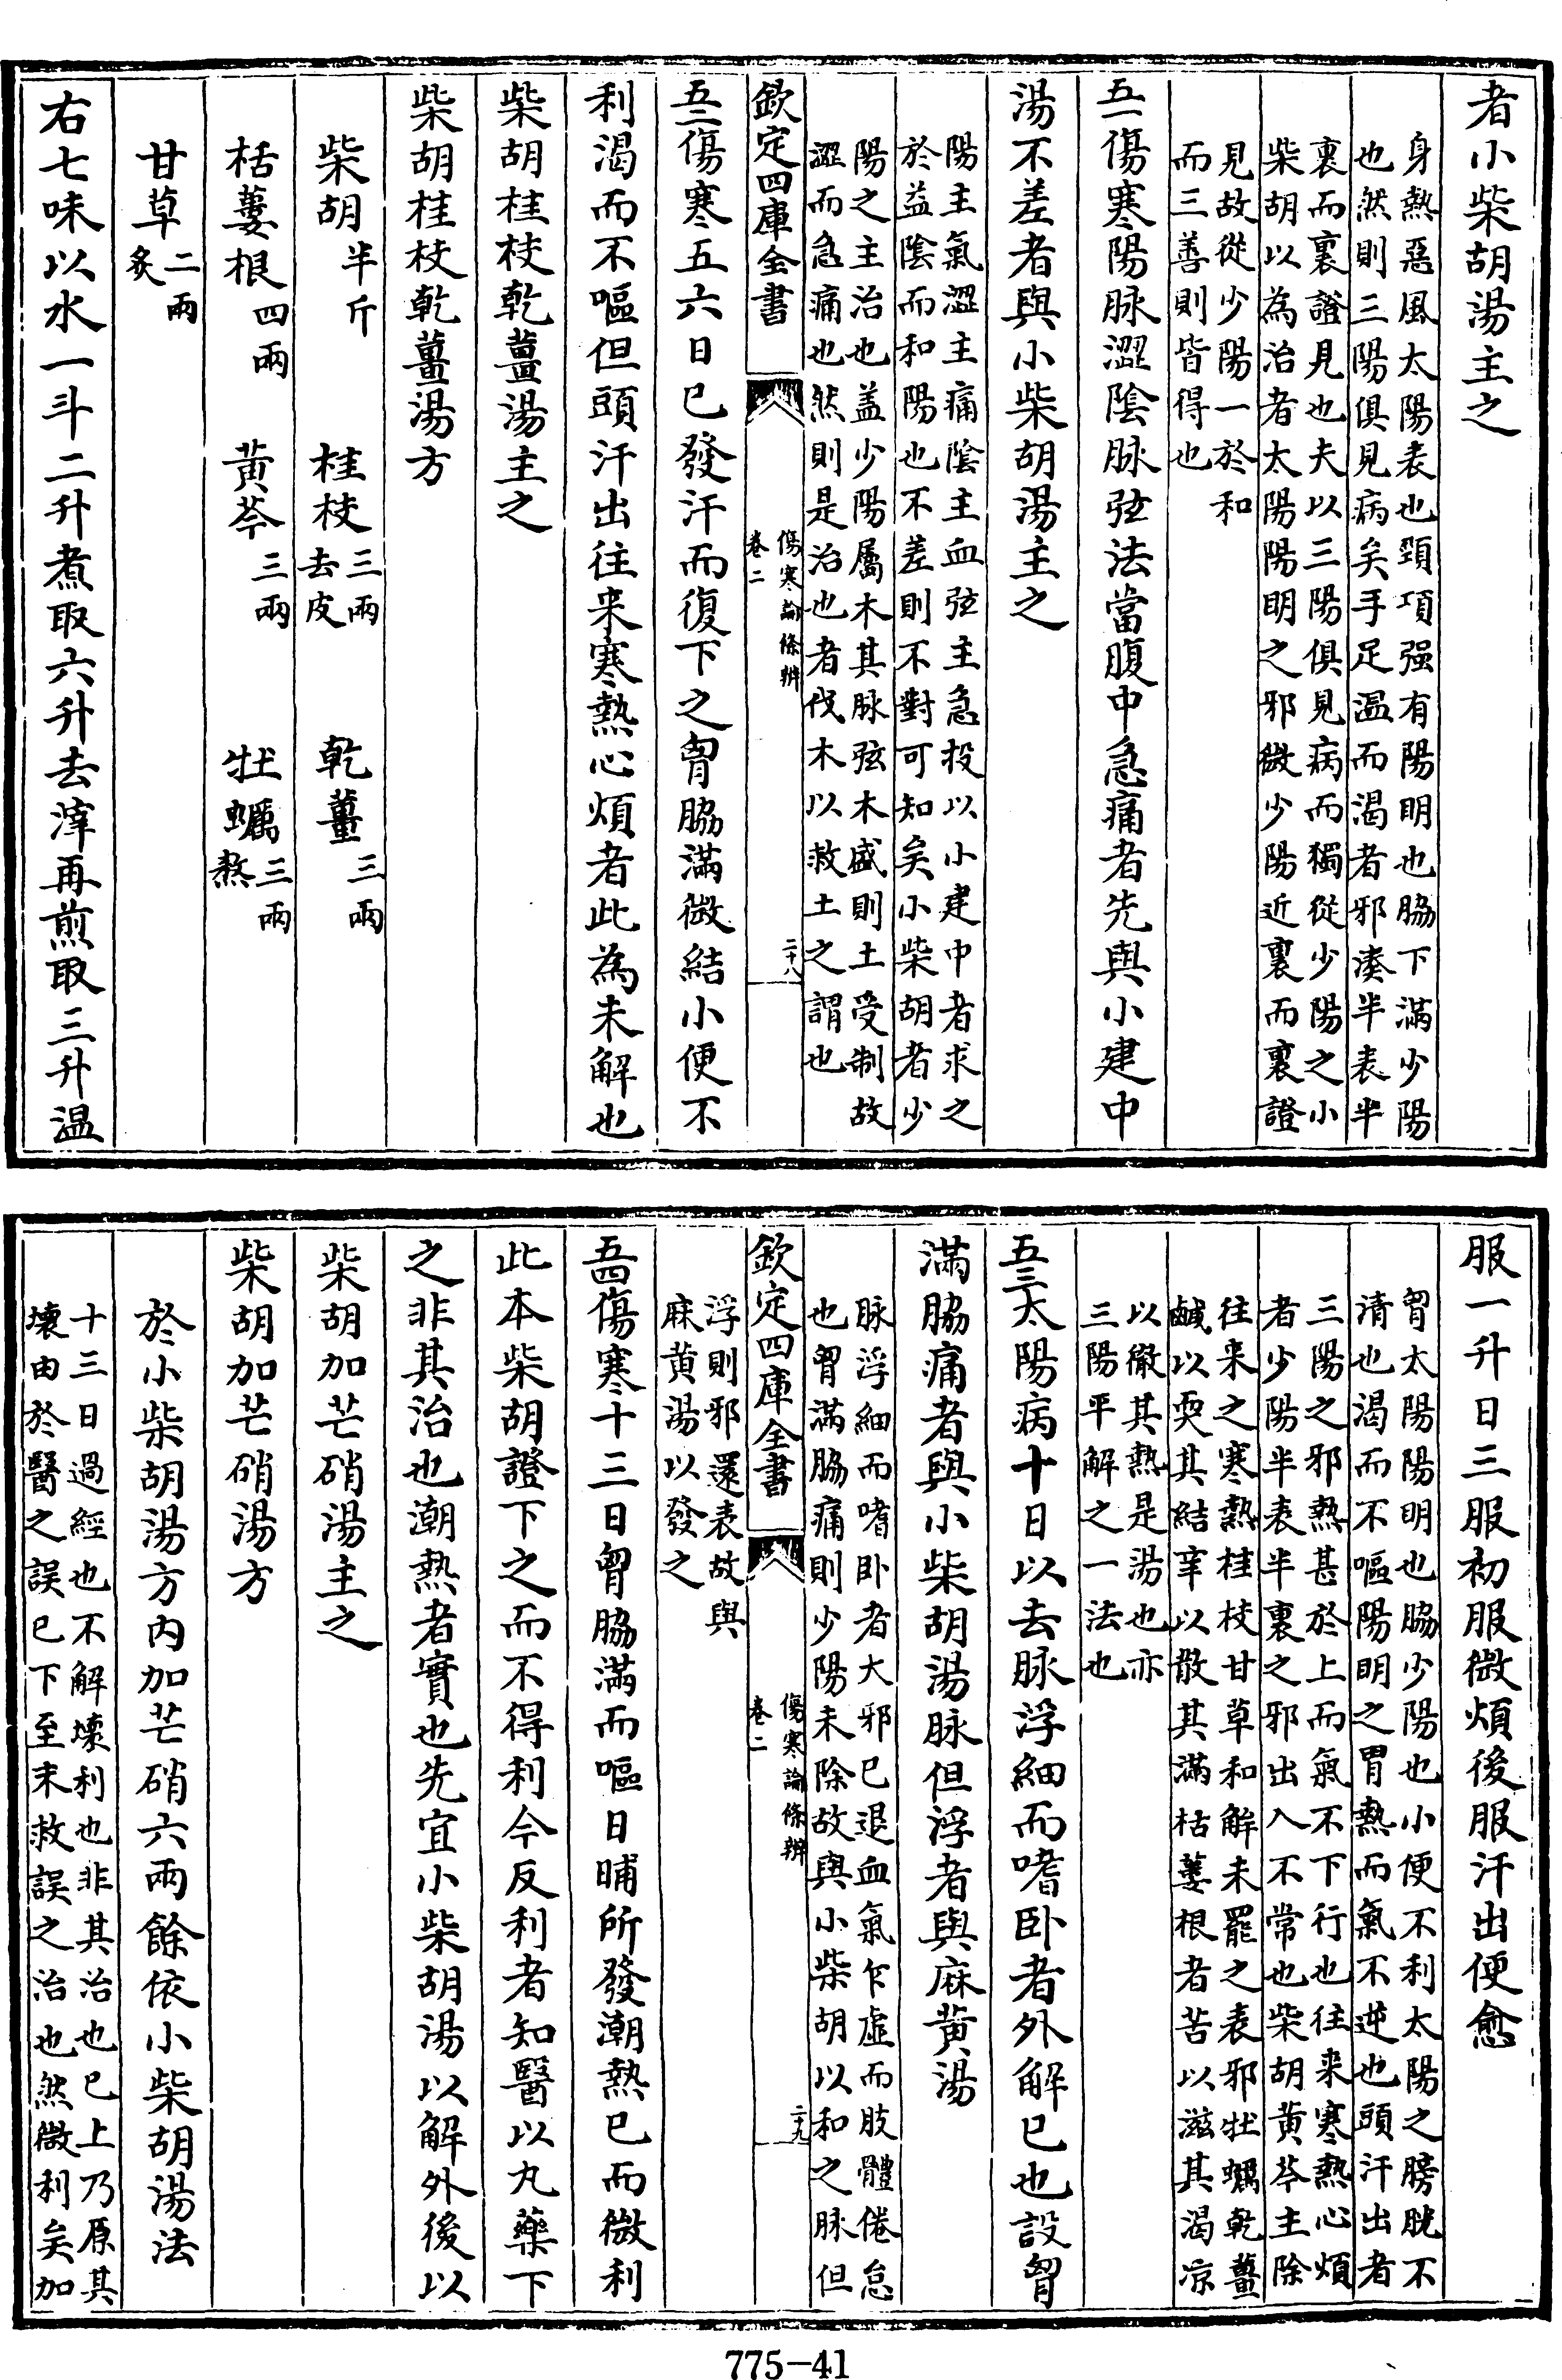 者小柴胡湯主之
身熱惡風太陽表也頸項强有陽明也脇下滿少陽
也然則三陽俱見病矣手足温而渴者邪湊半表半
裏而裏證見也夫以三陽俱見病而獨從少陽之小
柴胡以為治者太陽陽明之邪微少陽近裏而裏證
見故從少陽一於和
而三善則皆得也
五一傷寒陽脉澀陰脉弦法當腹中急痛者先與小建中
湯不差者與小柴胡湯主之
陽主氣澀主痛陰主血弦主急投以小建中者求之
於益陰而和陽也不差則不對可知矣小柴胡者少
陽之主治也盖少陽屬木其脉弦木盛則土受制故
澀而急痛也然則是治也者伐木以救土之謂也
欽定四庫全書
傷寒論條辨
卷二
二十八
五二傷寒五六日已發汗而復下之胷脇滿微結小便不
利渴而不嘔但頭汗出往来寒熱心煩者此為未解也
柴胡桂枝乾薑湯主之
柴胡桂枝乾薑湯方
柴胡半斤 桂枝三兩去皮 乾薑三兩
栝蔞根四兩 黄芩三兩 牡蠣三兩熬
甘草二兩炙
右七味以水一斗二升煮取六升去滓再煎取三升温
服一升日三服初服微煩後服汗出便愈
胷太陽陽明也脇少陽也小便不利太陽之膀胱不
清也渴而不嘔陽明之胃熱而氣不逆也頭汗出者
三陽之邪熱甚於上而氣不下行也往来寒熱心煩
者少陽半表半裏之邪出入不常也柴胡黄芩主除
往来之寒熱桂枝甘草和解未罷之表邪牡蠣乾薑
鹹以耎其結辛以散其滿栝蔞根者苦以滋其渴凉
以徹其熱是湯也亦
三陽平解之一法也
五三太陽病十日以去脉浮細而嗜卧者外解已也設胷
滿脇痛者與小柴胡湯脉但浮者與麻黄湯
脉浮細而嗜卧者大邪已退血氣乍虛而肢體倦怠
也胷滿脇痛則少陽未除故與小柴胡以和之脉但
欽定四庫全書
傷寒論條辨
卷二
二十九
浮則邪還表故與
麻黄湯以發之
五四傷寒十三日胷脇滿而嘔日晡所發潮熱已而微利
此本柴胡證下之而不得利今反利者知醫以丸藥下
之非其治也潮熱者實也先宜小柴胡湯以解外後以
柴胡加芒硝湯主之
柴胡加芒硝湯方
於小柴胡湯方内加芒硝六兩餘依小柴胡湯法
十三日過經也不解壞利也非其治也已上乃原其
壞由於醫之誤已下至末救誤之治也然微利矣加
775-41